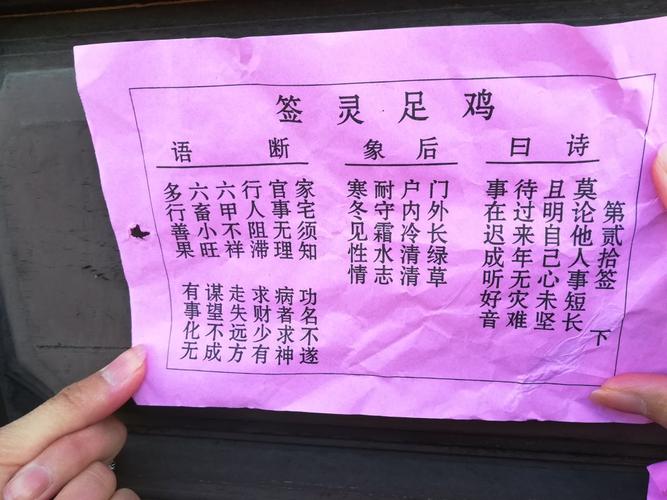 鸡足灵签
第贰拾签 下
诗曰
莫论他人事短长
且明自己心未坚
待过来年无灾难
事在迟成听好音
后象
门外长绿草
户内冷清清
耐守霜水志
寒冬见性情
断语
家宅须知 功名不遂
官事无理 病者求神
行人阻滞 求财少有
六甲不祥 走失远方
六畜小旺 谋望不成
多行善果 有事化无